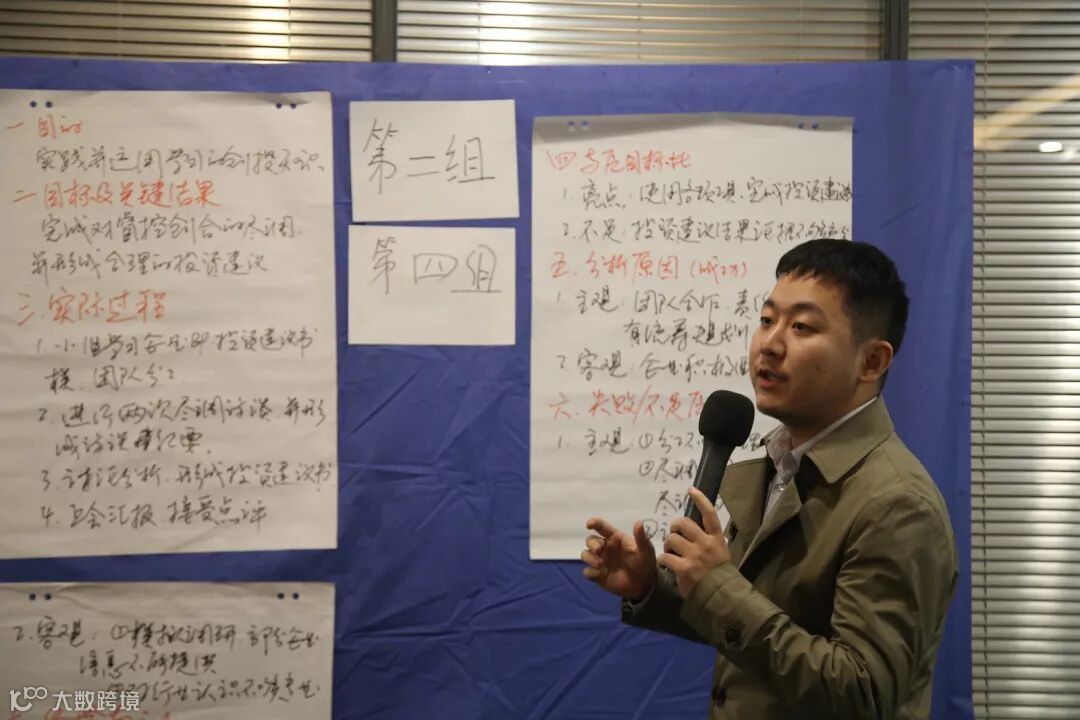 一.目的
实践并运用学习的创投知识
二.目标及关键结果
完成对睿控创合的尽调,
并形成合理的投资建议
三.实际过程
1.小组学习企业即投资建议书
模,团队分工
2.进行两次尽调访谈,并形
成访谈纪要
3.讨论分析,形成投资建议书
4.上会汇报,接受点评
2.客观:①模拟调研,部分企业
信息不能提供
行业认识不够专业
第二组
第四组
四.与原目标比
1.亮点:使用各项工具,完成投资建议
2.不足:投资建议结果论据不够充分
五.分析原因(成功)
1.主观:团队合作,责
2.客观:企业积极
六.失败/不足
1.主观:①分工不
②尽调
大数跨境